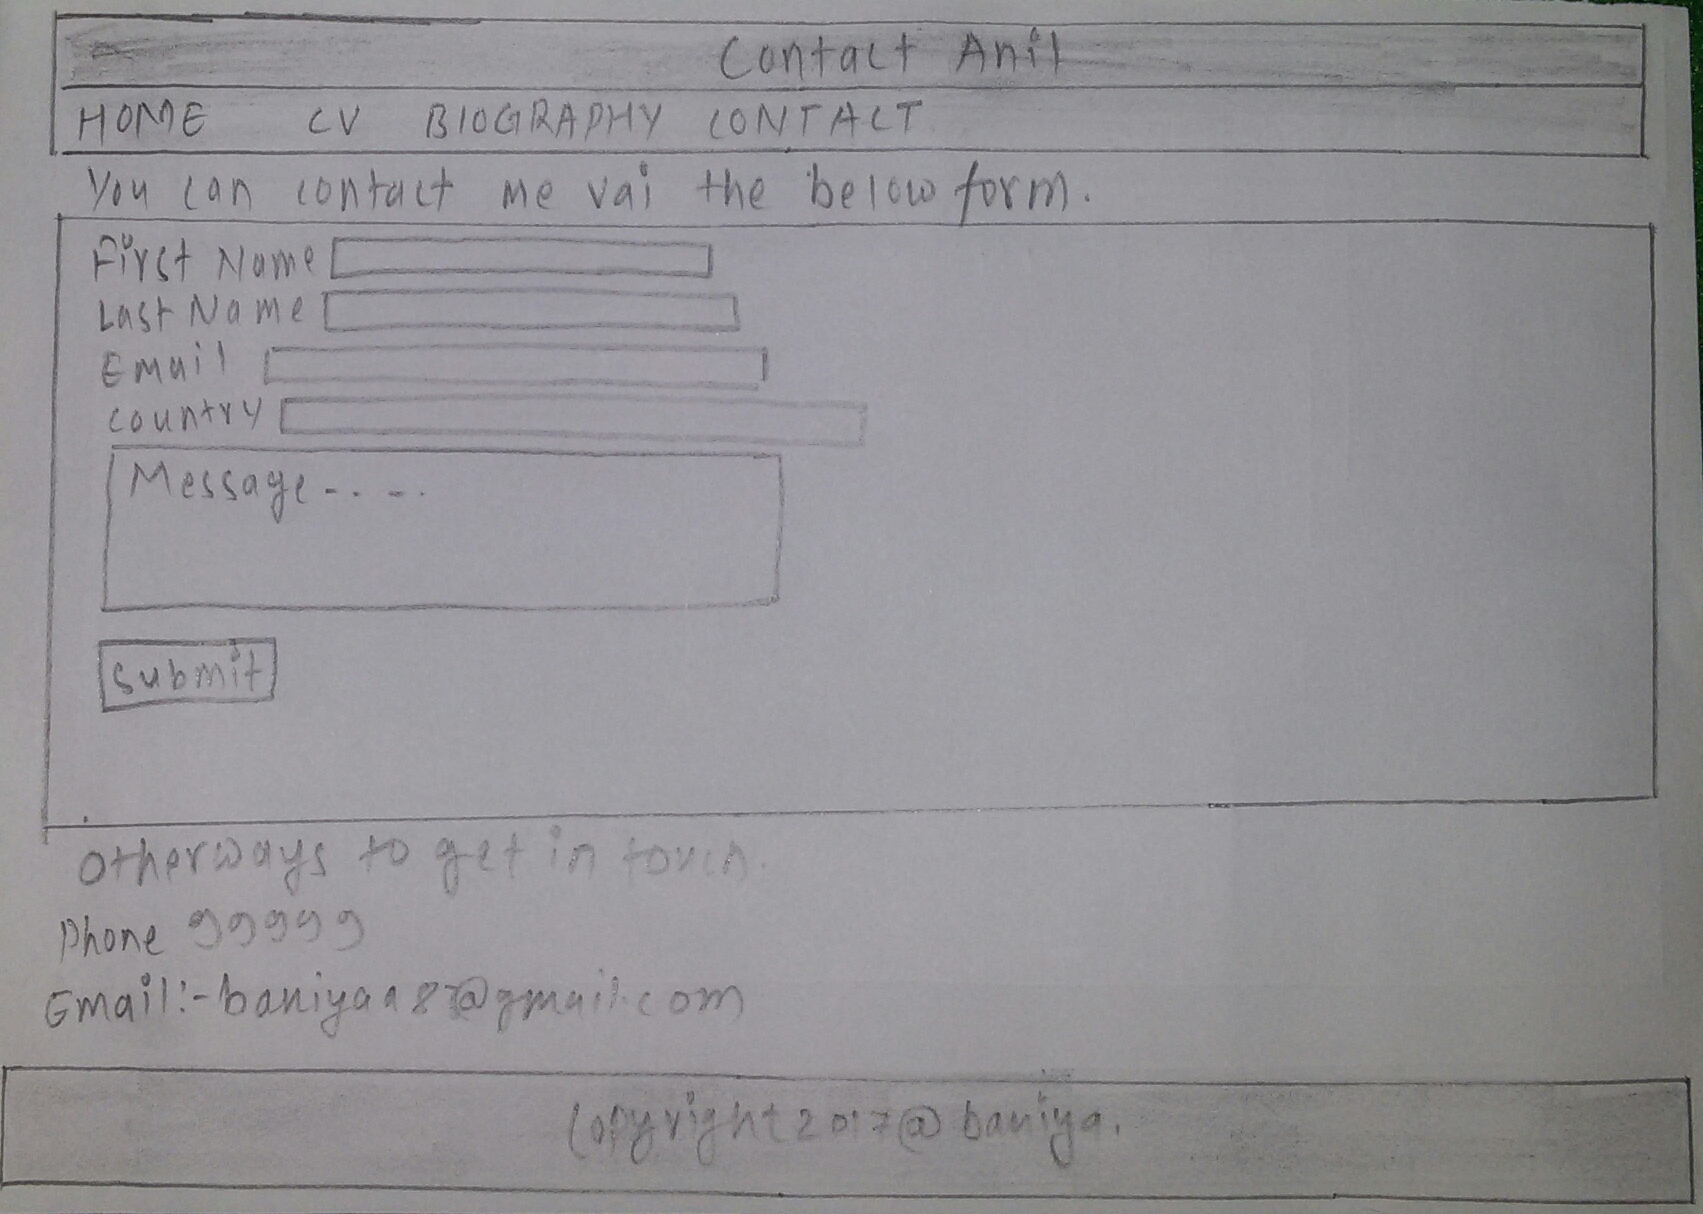 Contact Anil
HOME CV BIOGRAPHY CONTACT
You can contact me vai the below form.
First Name
Last Name
Email
country
Message-..-.
Submit
Otherways to get in touch.
Phone 99999
Email:-baniyaa87@gmail.com
Copyright2017@baniya.